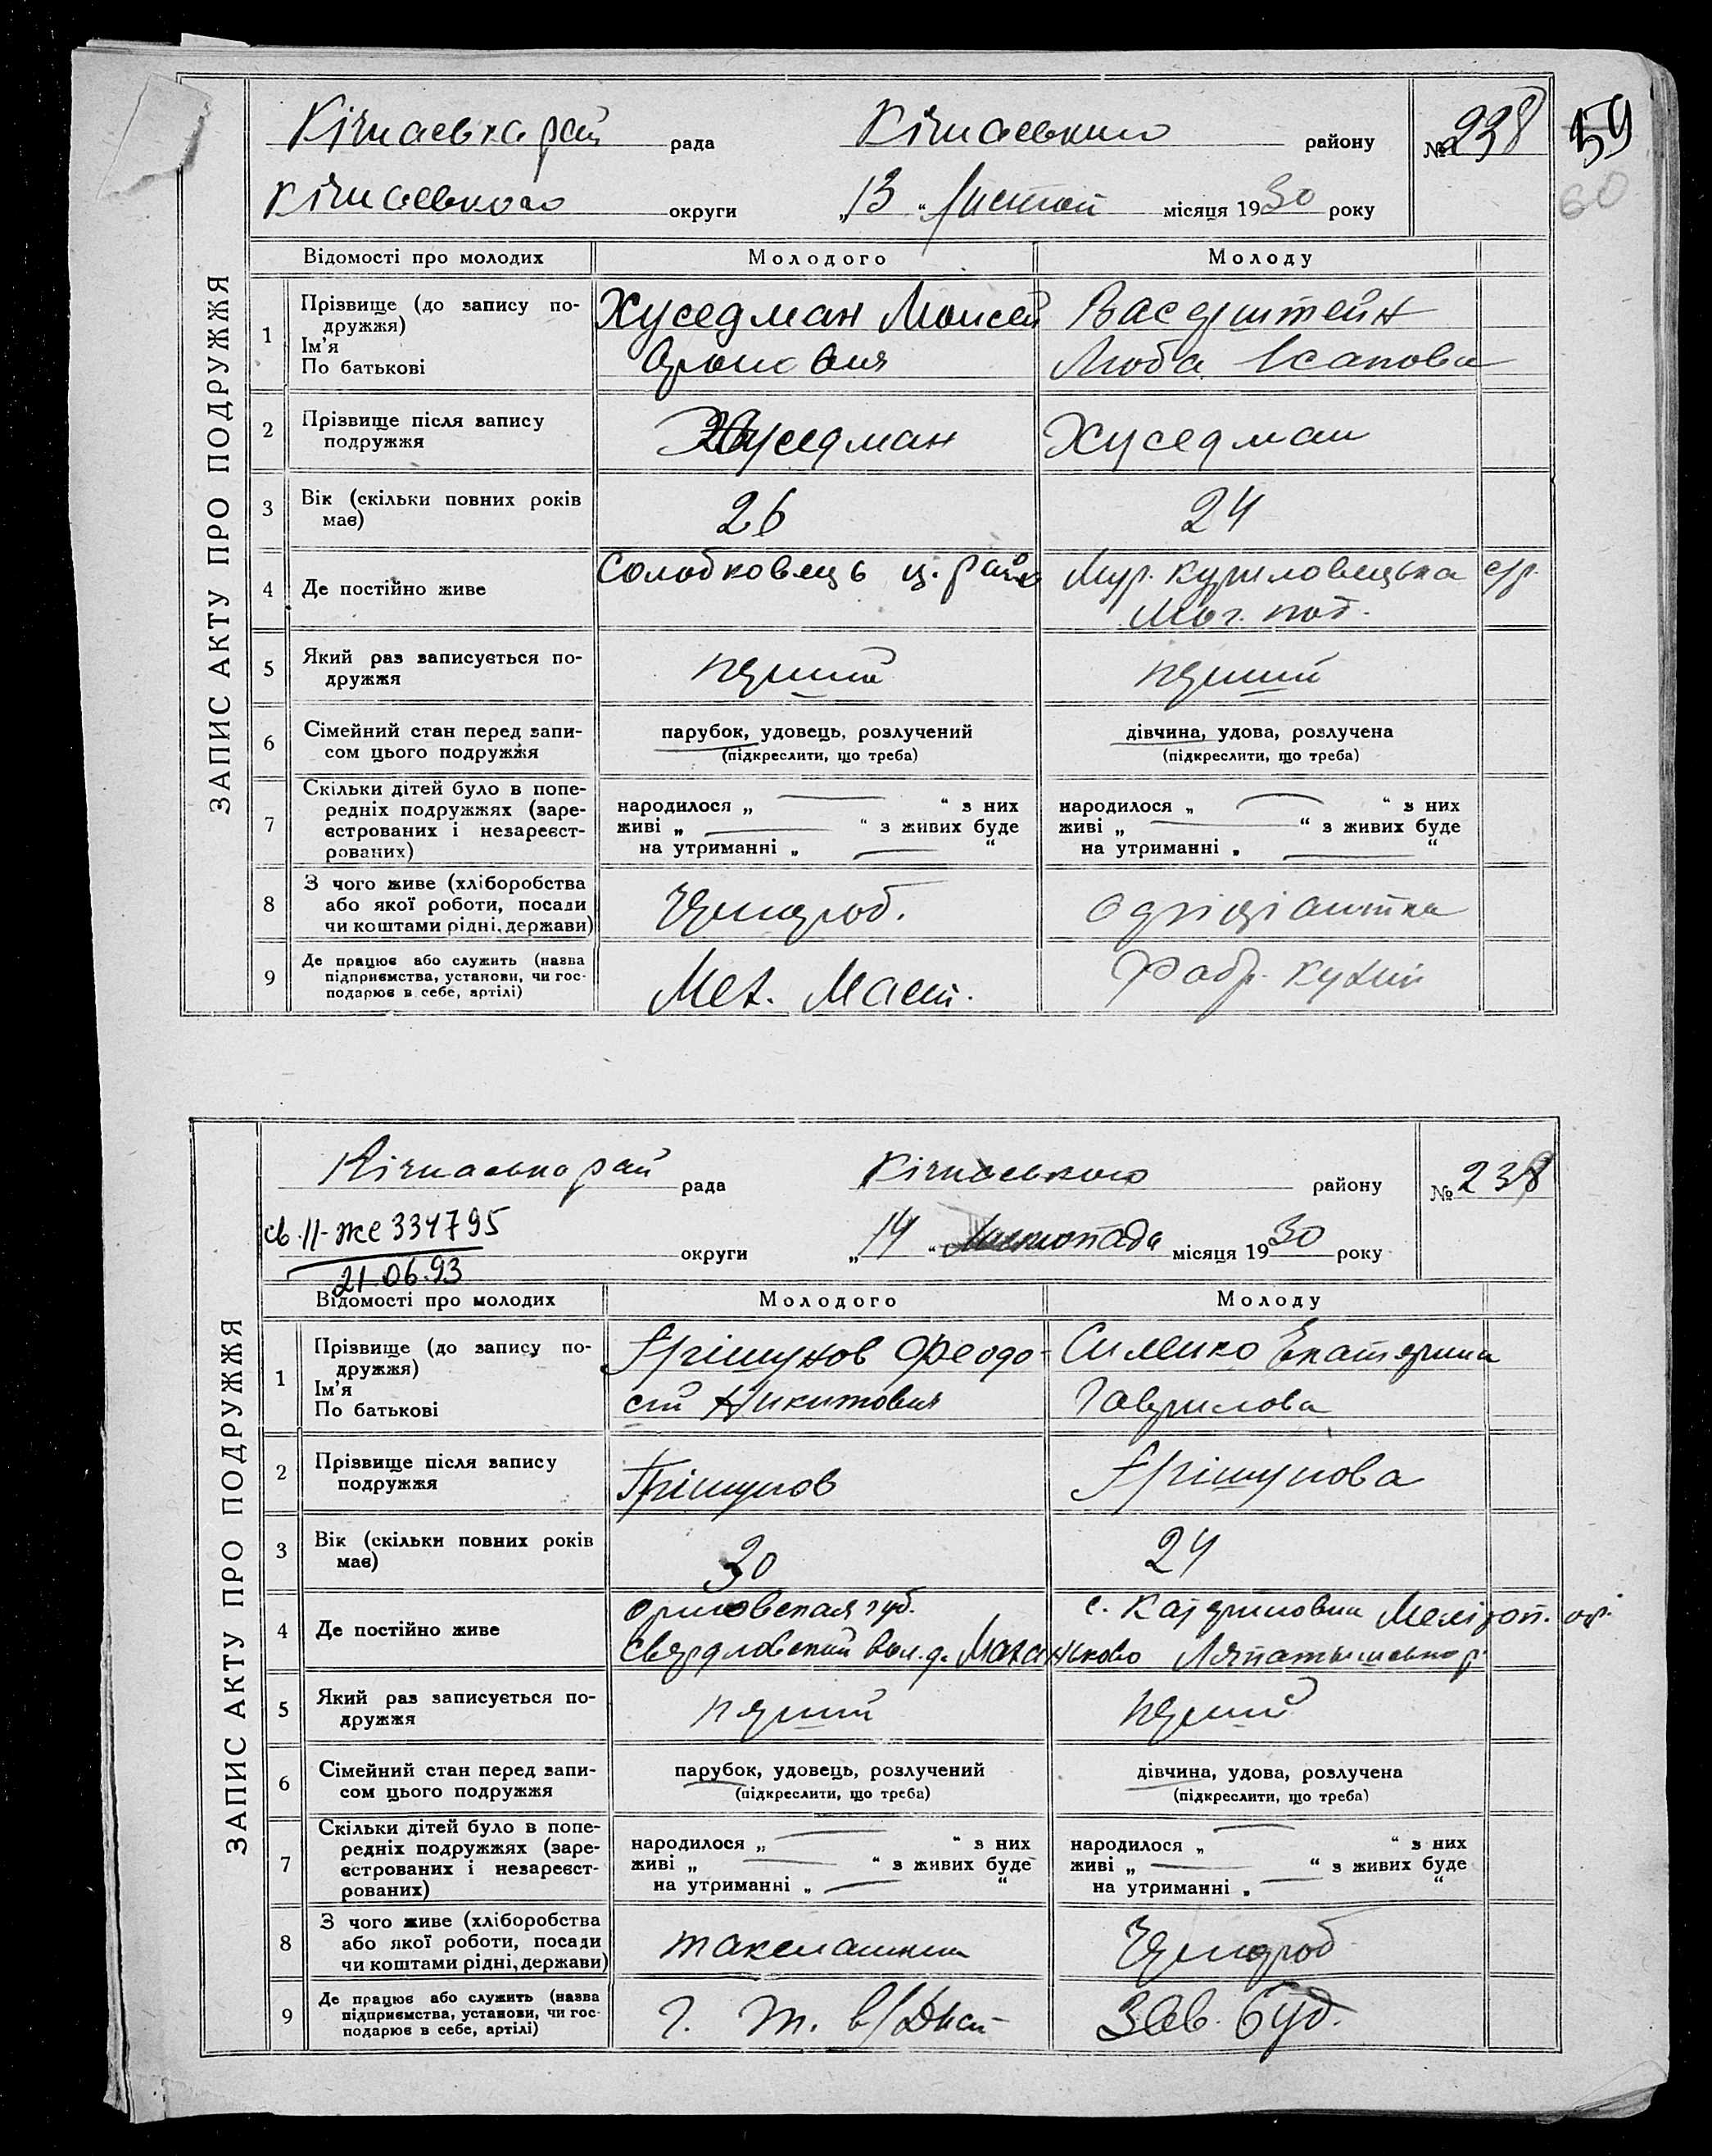 ЗАПИС АКТУ ПРО ПОДРУЖЖЯ
Кічкаська рай рада Кічкаського району № 238
59
60
Кічкаського округи „13“ Листоп місяця 1930 року
Відомості про молодих Молодого Молоду
1 Прізвище (до запису подружжя) Ім'я По батькові
Хуседман Моисей
Аронович
Васерштейн
Люба Ісакова
2 Прізвище після запису подружжя Хуседман Хуседман
3 Вік (скільки повних років має) 26 24
4 Де постійно живе
Солобковець ц. райо
Мур. Куриловецька с/р.
Мог. под.
5 Який раз записується подружжя перший перший
6 Сімейний стан перед записом цього подружжя
парубок, удовець, розлучений
(підкреслити, що треба)
дівчина, удова, розлучена
(підкреслити, що треба)
7 Скільки дітей було в попередніх подружжях (зареєстрованих і незареєстрованих)
народилося „ “ з них
живі „ “ з живих буде
на утриманні „ “
народилося „ “ з них
живі „ “ з живих буде
на утриманні „ “
8 З чого живе (хліборобства або якої роботи, посади чи коштами рідні, держави)
Чорнороб.
Офіціантка
9 Де працює або служить (назва підприємства, установи, чи господарює в себе, артілі)
Мех. Маст.
Фабр. кухні
ЗАПИС АКТУ ПРО ПОДРУЖЖЯ
Кічкаська рай рада Кічкаського району № 238
св. II-ЖС 334795
21.06.93
округи „14“ Листопада місяця 1930 року
Відомості про молодих Молодого Молоду
1 Прізвище (до запису подружжя) Ім'я По батькові
Грішунов Феодо-
сій Никитович
Силенко Екатерина
Гаврилова
2 Прізвище після запису подружжя Грішунов Грішунова
3 Вік (скільки повних років має) 30 24
4 Де постійно живе
Орловская губ.
Свердловский вол. д. Маханьково
с. Катериновка Мелітоп. окр.
5 Який раз записується подружжя перший перший
6 Сімейний стан перед записом цього подружжя
парубок, удовець, розлучений
(підкреслити, що треба)
дівчина, удова, розлучена
(підкреслити, що треба)
7 Скільки дітей було в попередніх подружжях (зареєстрованих і незареєстрованих)
народилося „ “ з них
живі „ “ з живих буде
на утриманні „ “
народилося „ “ з них
живі „ “ з живих буде
на утриманні „ “
8 З чого живе (хліборобства або якої роботи, посади чи коштами рідні, держави)
Чорнороб
9 Де працює або служить (назва підприємства, установи, чи господарює в себе, артілі)
Зав. буд.